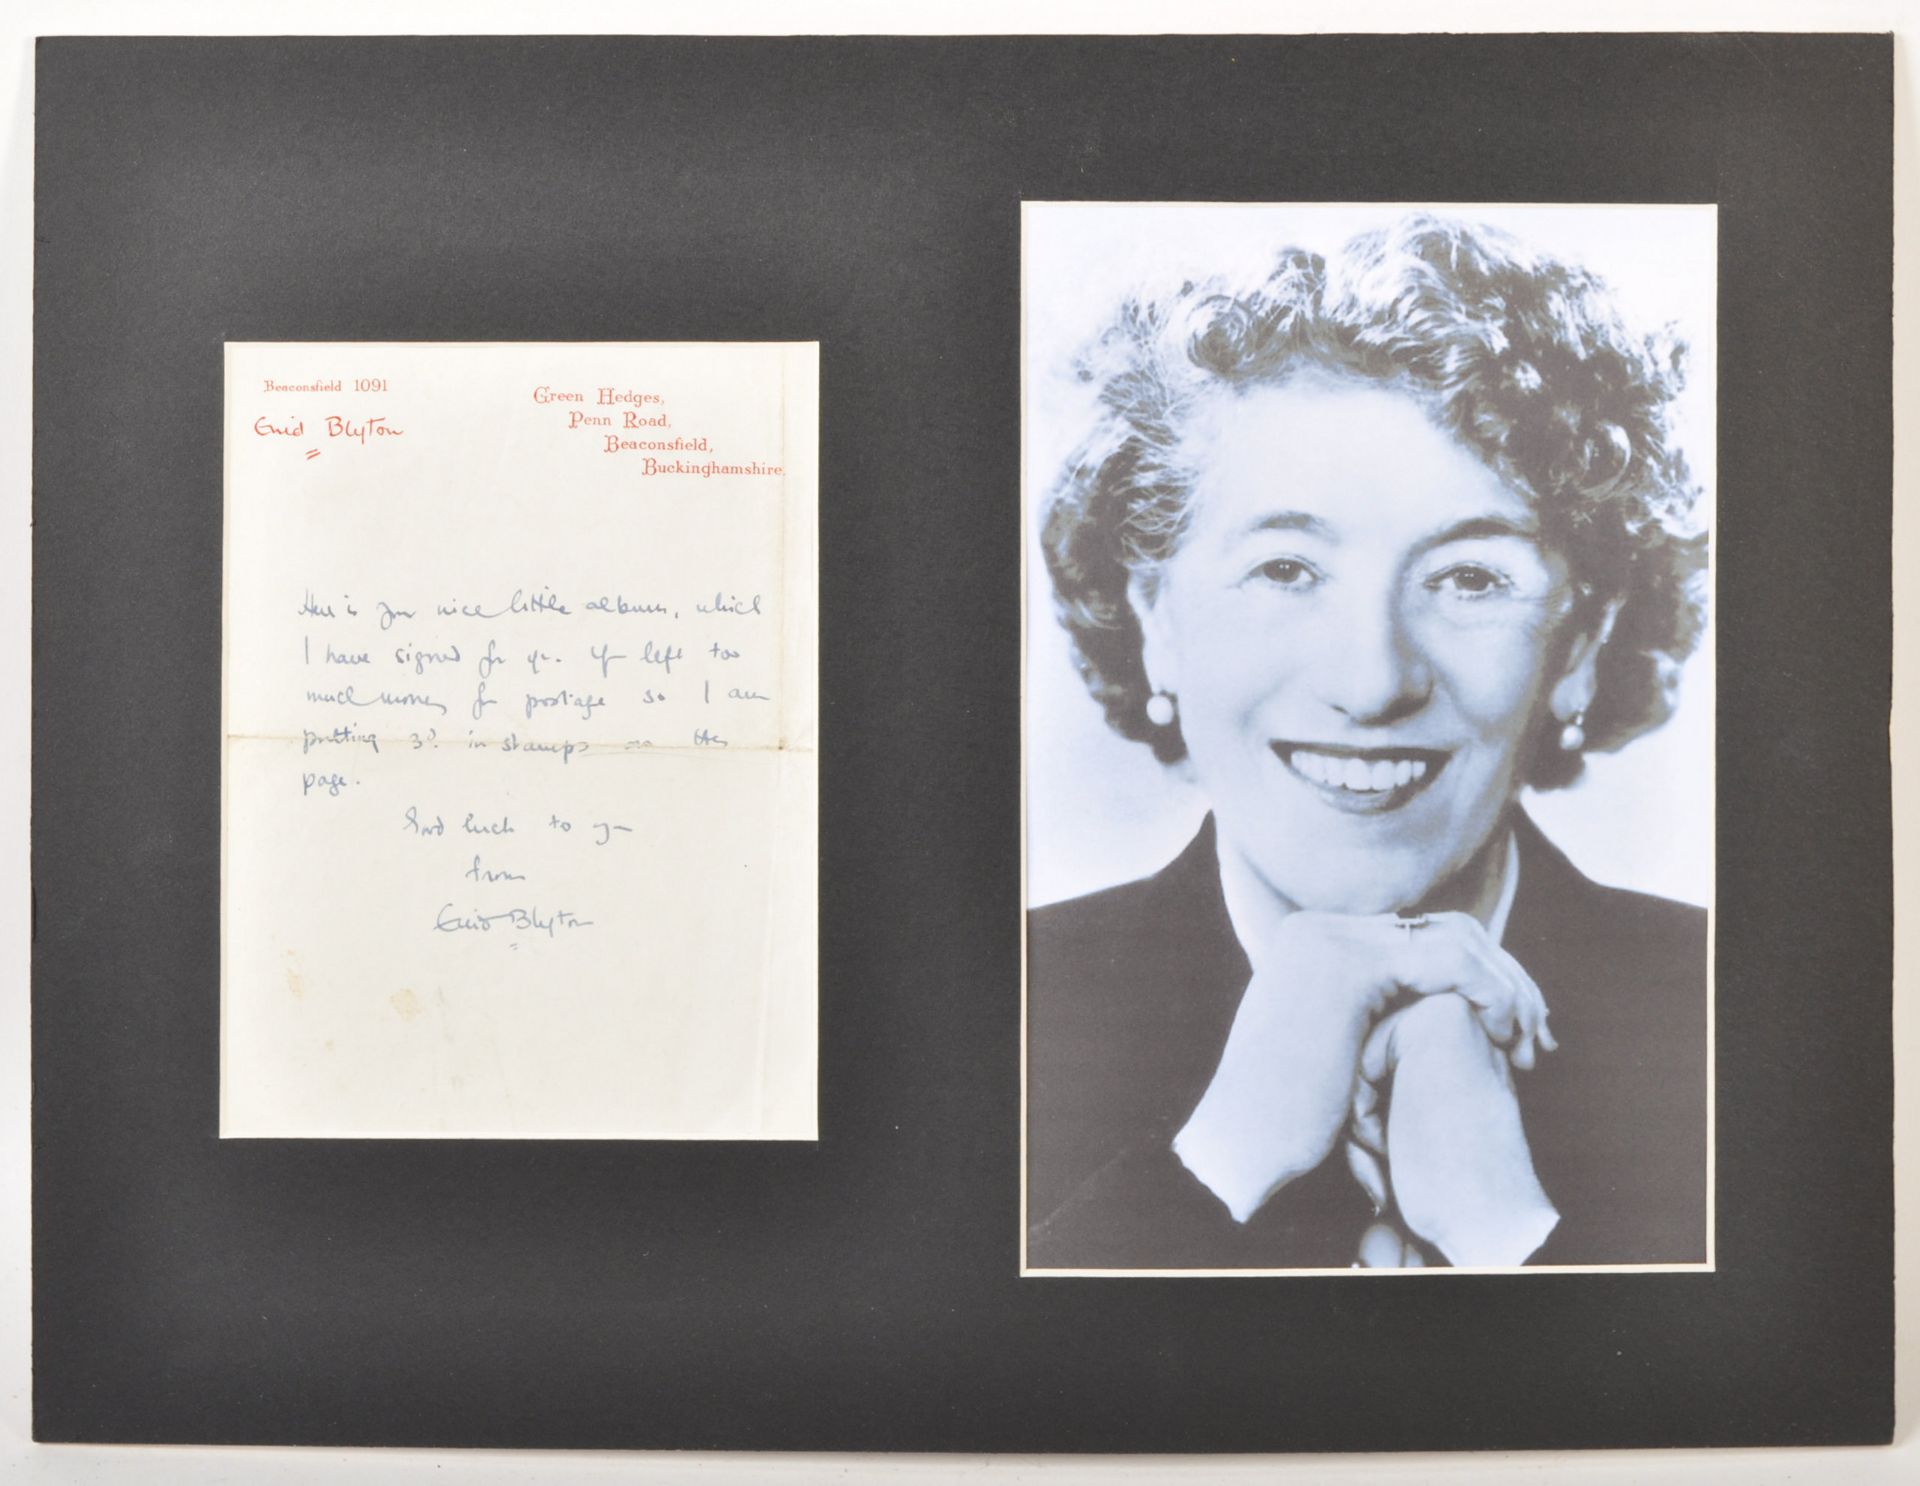 Beaconsfield 1091
Enid Blyton
Green Hedges,
Penn Road,
Beaconsfield,
Buckinghamshire.
Here is your nice little album, which
I have signed for you. You left too
much money for postage so I am
putting 3d. in stamps on this
page.
Good luck to you
from
Enid Blyton